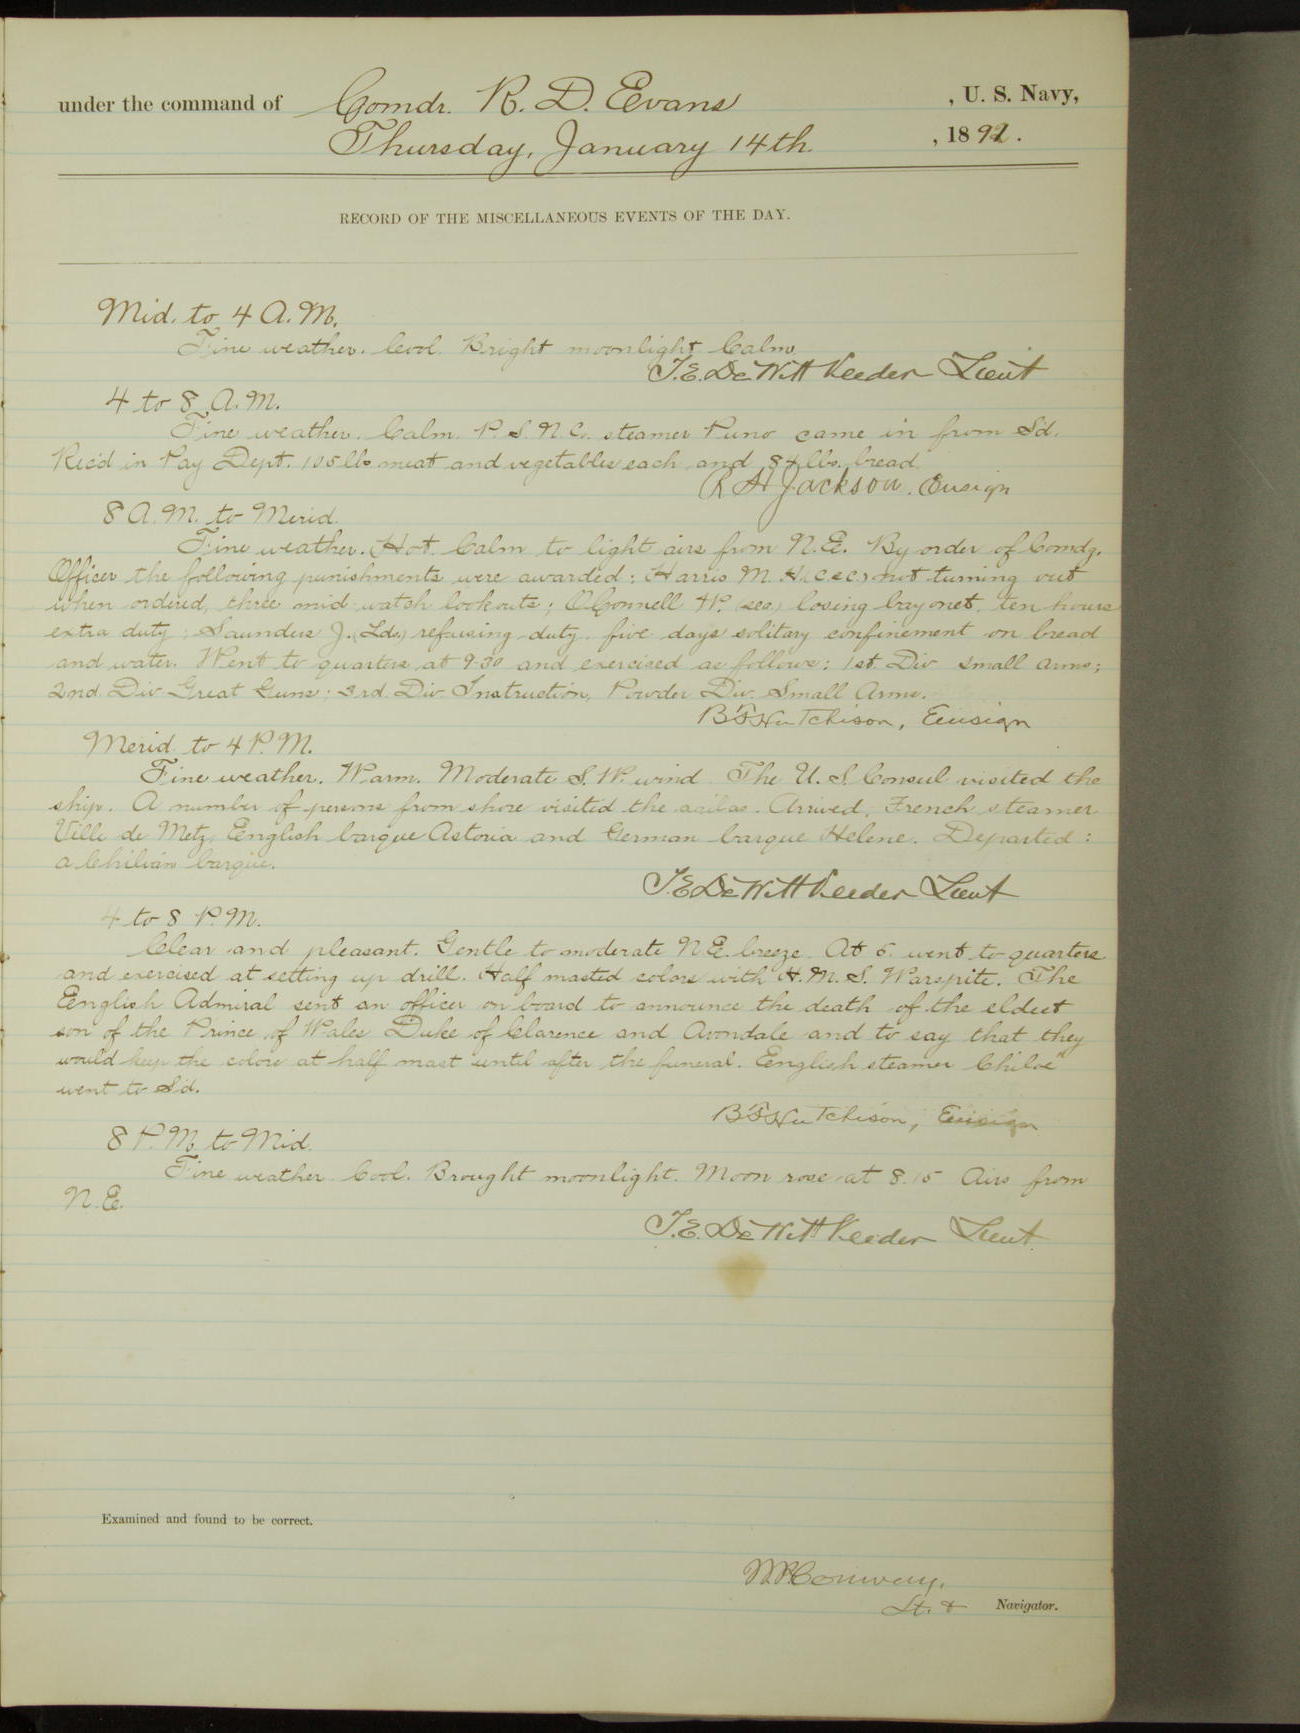 under the command of Comdr. R. D. Evans , U. S. Navy,
Thursday, January 14th. , 1892.
RECORD OF THE MISCELLANEOUS EVENTS OF THE DAY.
Mid. to 4 A.M.
Fine weather. Cool. Bright moonlight. Calm.
T.E. DeWitt Veeder Lieut
4 to 8 A.M.
Fine weather. Calm. P. S. N. Co. steamer Puno came in from Sd.
Rec'd in Pay Dept. 105 lbs meat and vegetables each and 84 lbs. bread.
R H Jackson. Ensign
8 A.M. to Merid.
Fine weather. Hot. Calm to light airs from N.E. By order of Comdg.
Officer the following punishments were awarded: Harris M. H. not turning out
when ordered, three mid watch lookouts; O'Connell W. (sea) losing bayonet, ten hours
extra duty; Saunders J. (Lds) refusing duty five days solitary confinement on bread
and water. Went to quarters at 9.30 and exercised as follows: 1st. Div small arms;
2nd Div Great Guns; 3rd. Div. Instruction, Powder Div. Small Arms.
B F Hutchison, Ensign
Merid to 4 P.M.
Fine weather. Warm. Moderate S. W. wind. The U. S. Consul visited the
ship. A number of persons from shore visited the Arrived, French steamer
Ville de Metz, English barque Astoria and German barque Helene. Departed:
a Chilian barque.
T.E. DeWitt Veeder Lieut
4 to 8 P.M.
Clear and pleasant. Gentle to moderate N.E. breeze. At 5. went to quarters
and exercised at setting up drill. Half masted colors with H. M. S. Warspite. The
English Admiral sent an officer on board to announce the death of the eldest
son of the Prince of Wales Duke of Clarence and Avondale and to say that they
would keep the colors at half mast until after the funeral. English steamer Chiloe"
went to Sd.
B F Hutchison, Ensign
8 P.M. to Mid.
Fine weather. Cool. Brought moonlight. Moon rose at 8.15 Airs from
N.E.
T.E. DeWitt Veeder Lieut.
Examined and found to be correct.
W.P. Conway,
Lt. & Navigator.